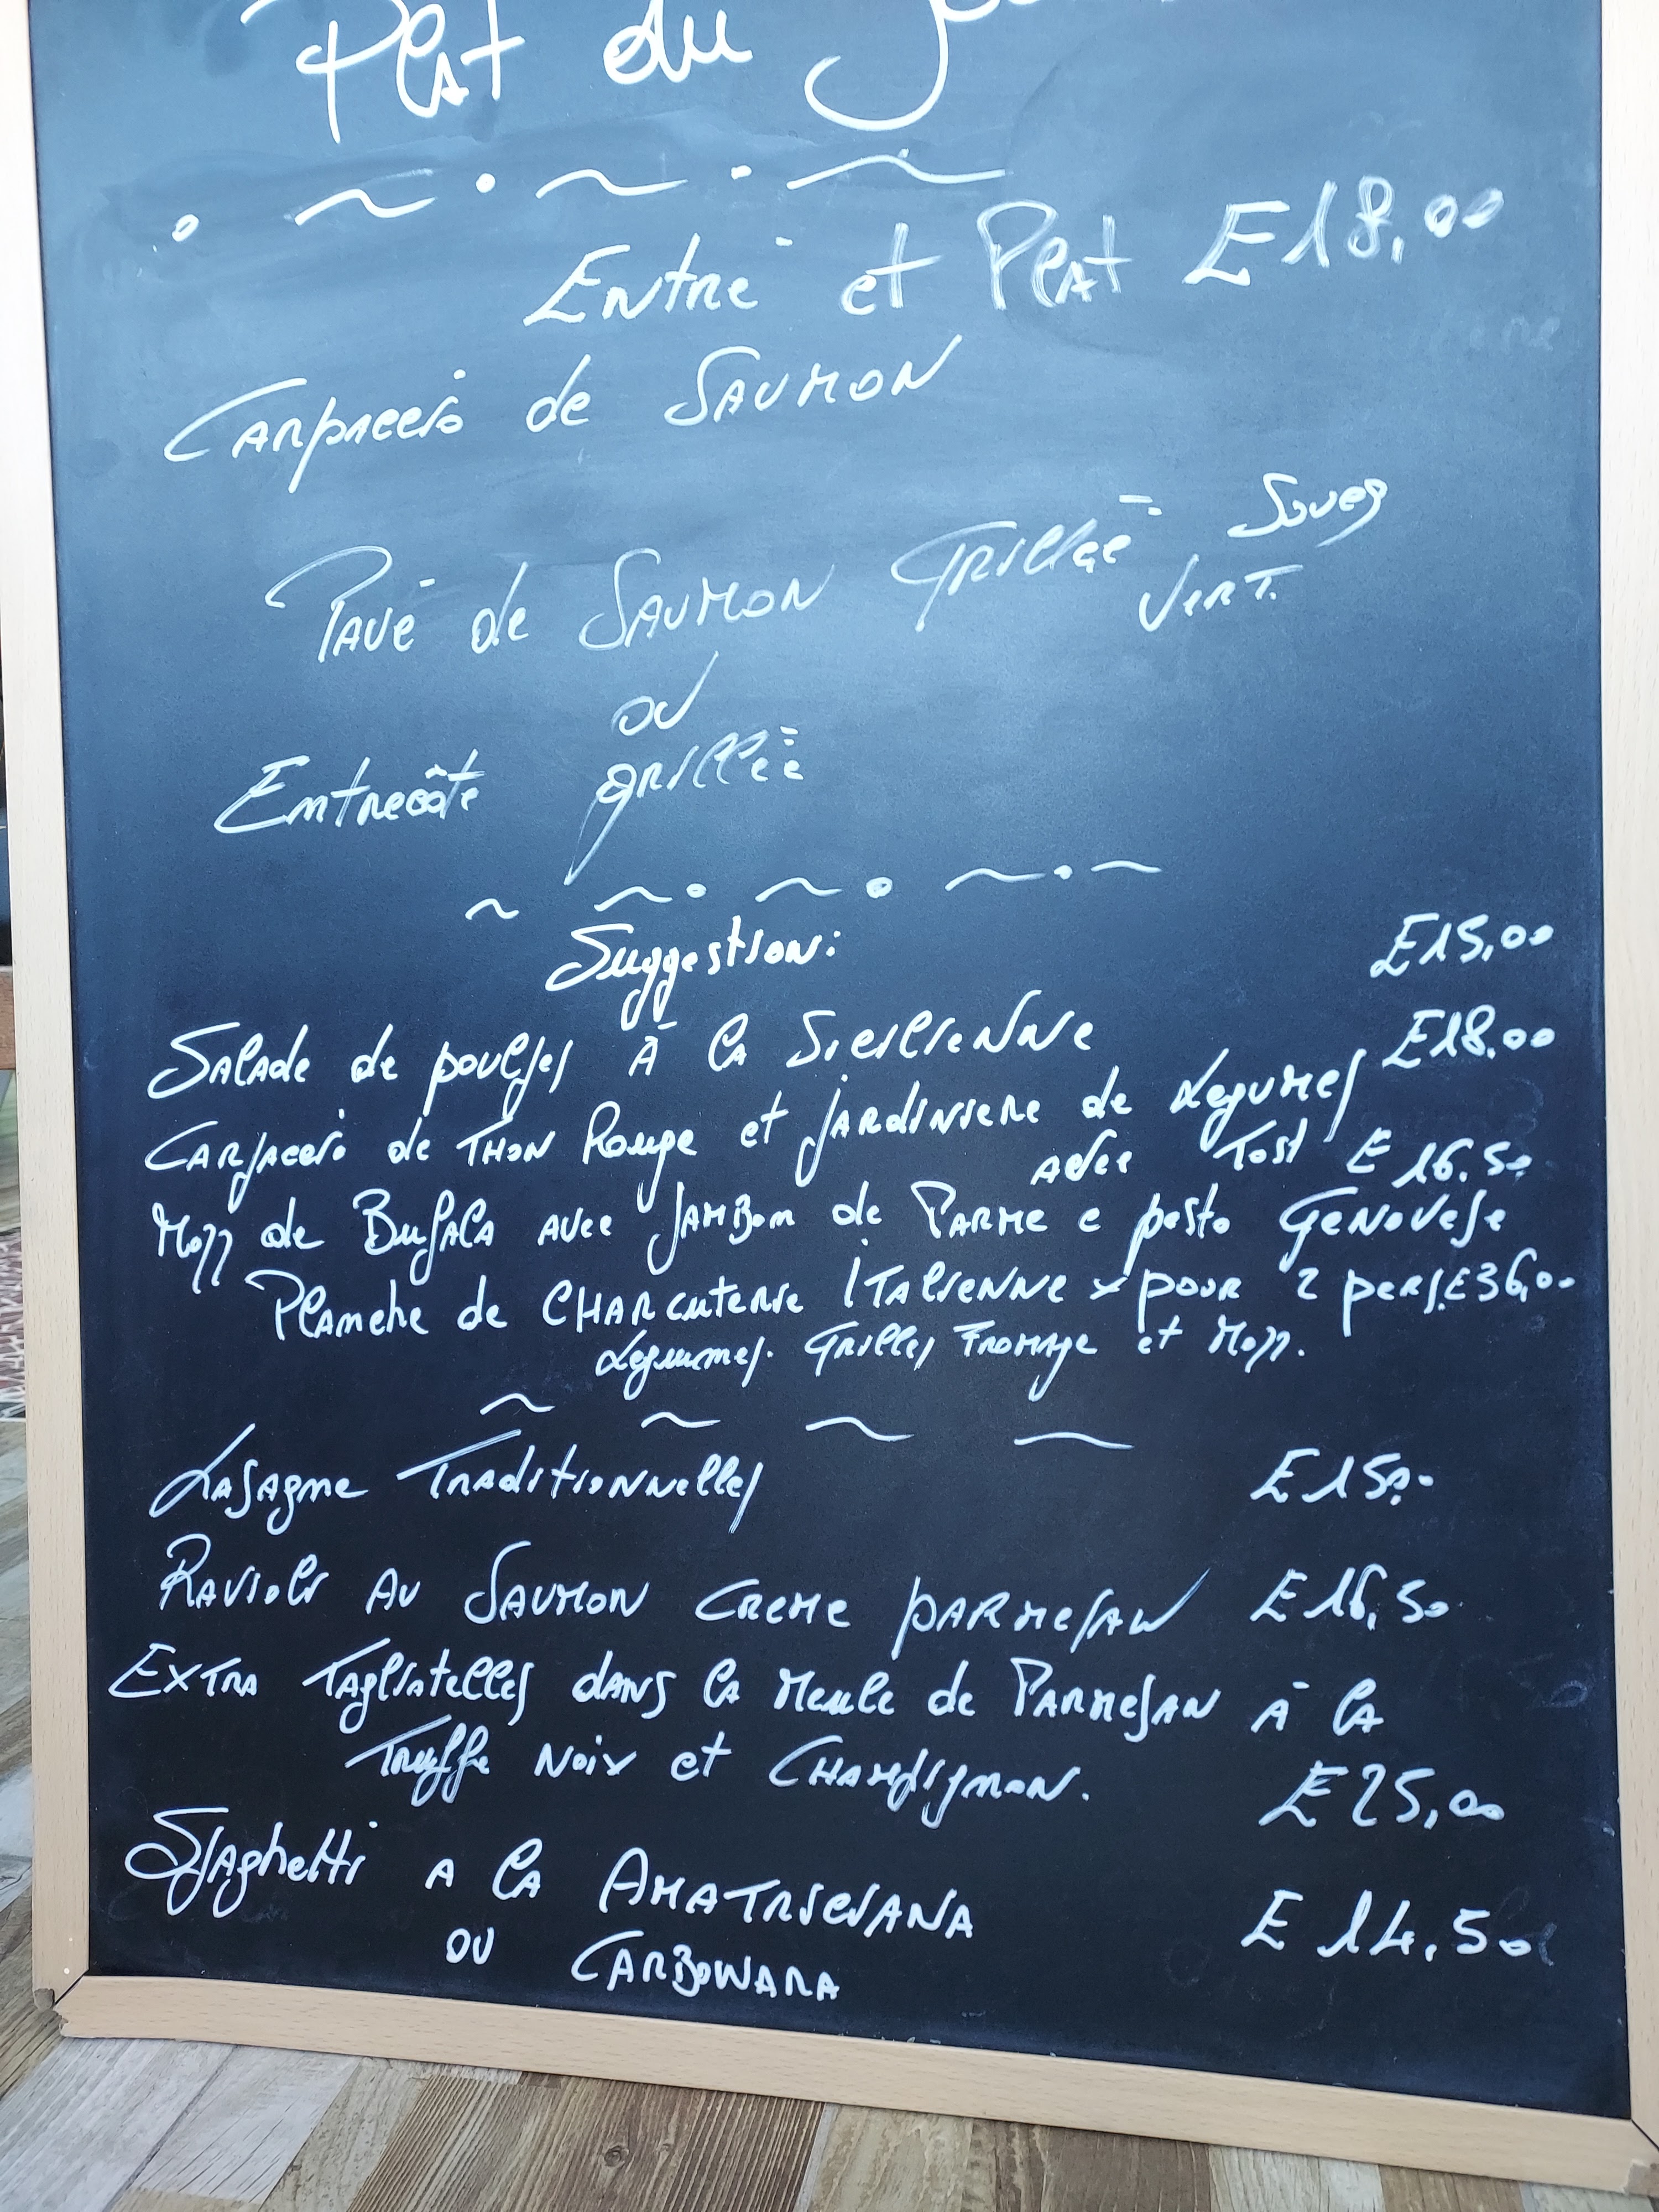 Plat du Jou
Entrē et Plat E18,00
Carpaccio de Saumon
Pavē de Saumon Grilleē Souce
Vert.
ou
Entrecôte grilleē
Suggestion:
Salade de poulpes Ā la Sicilienne E15,00
Carpaccio de Thon Rouge et jardiniere de Legumes E18.00
avec Tost E 16.50
Mozz de Bufala avec Jambom de Parme e pesto Genovese
Planche de Charcuterie Italienne x pour 2 pers. E36,00
Legummes. Grilles Fromage et Mozz.
Lasagne Traditionnelles E15,-
Ravioli au Saumon creme parmesan E16,50
Extra Tagliatelles dans la Meule de Parmesan Ā la
Truffe Noix et Champignon. E25,00
Spaghetti a la Amatriciana E14,50
ou Carbonara